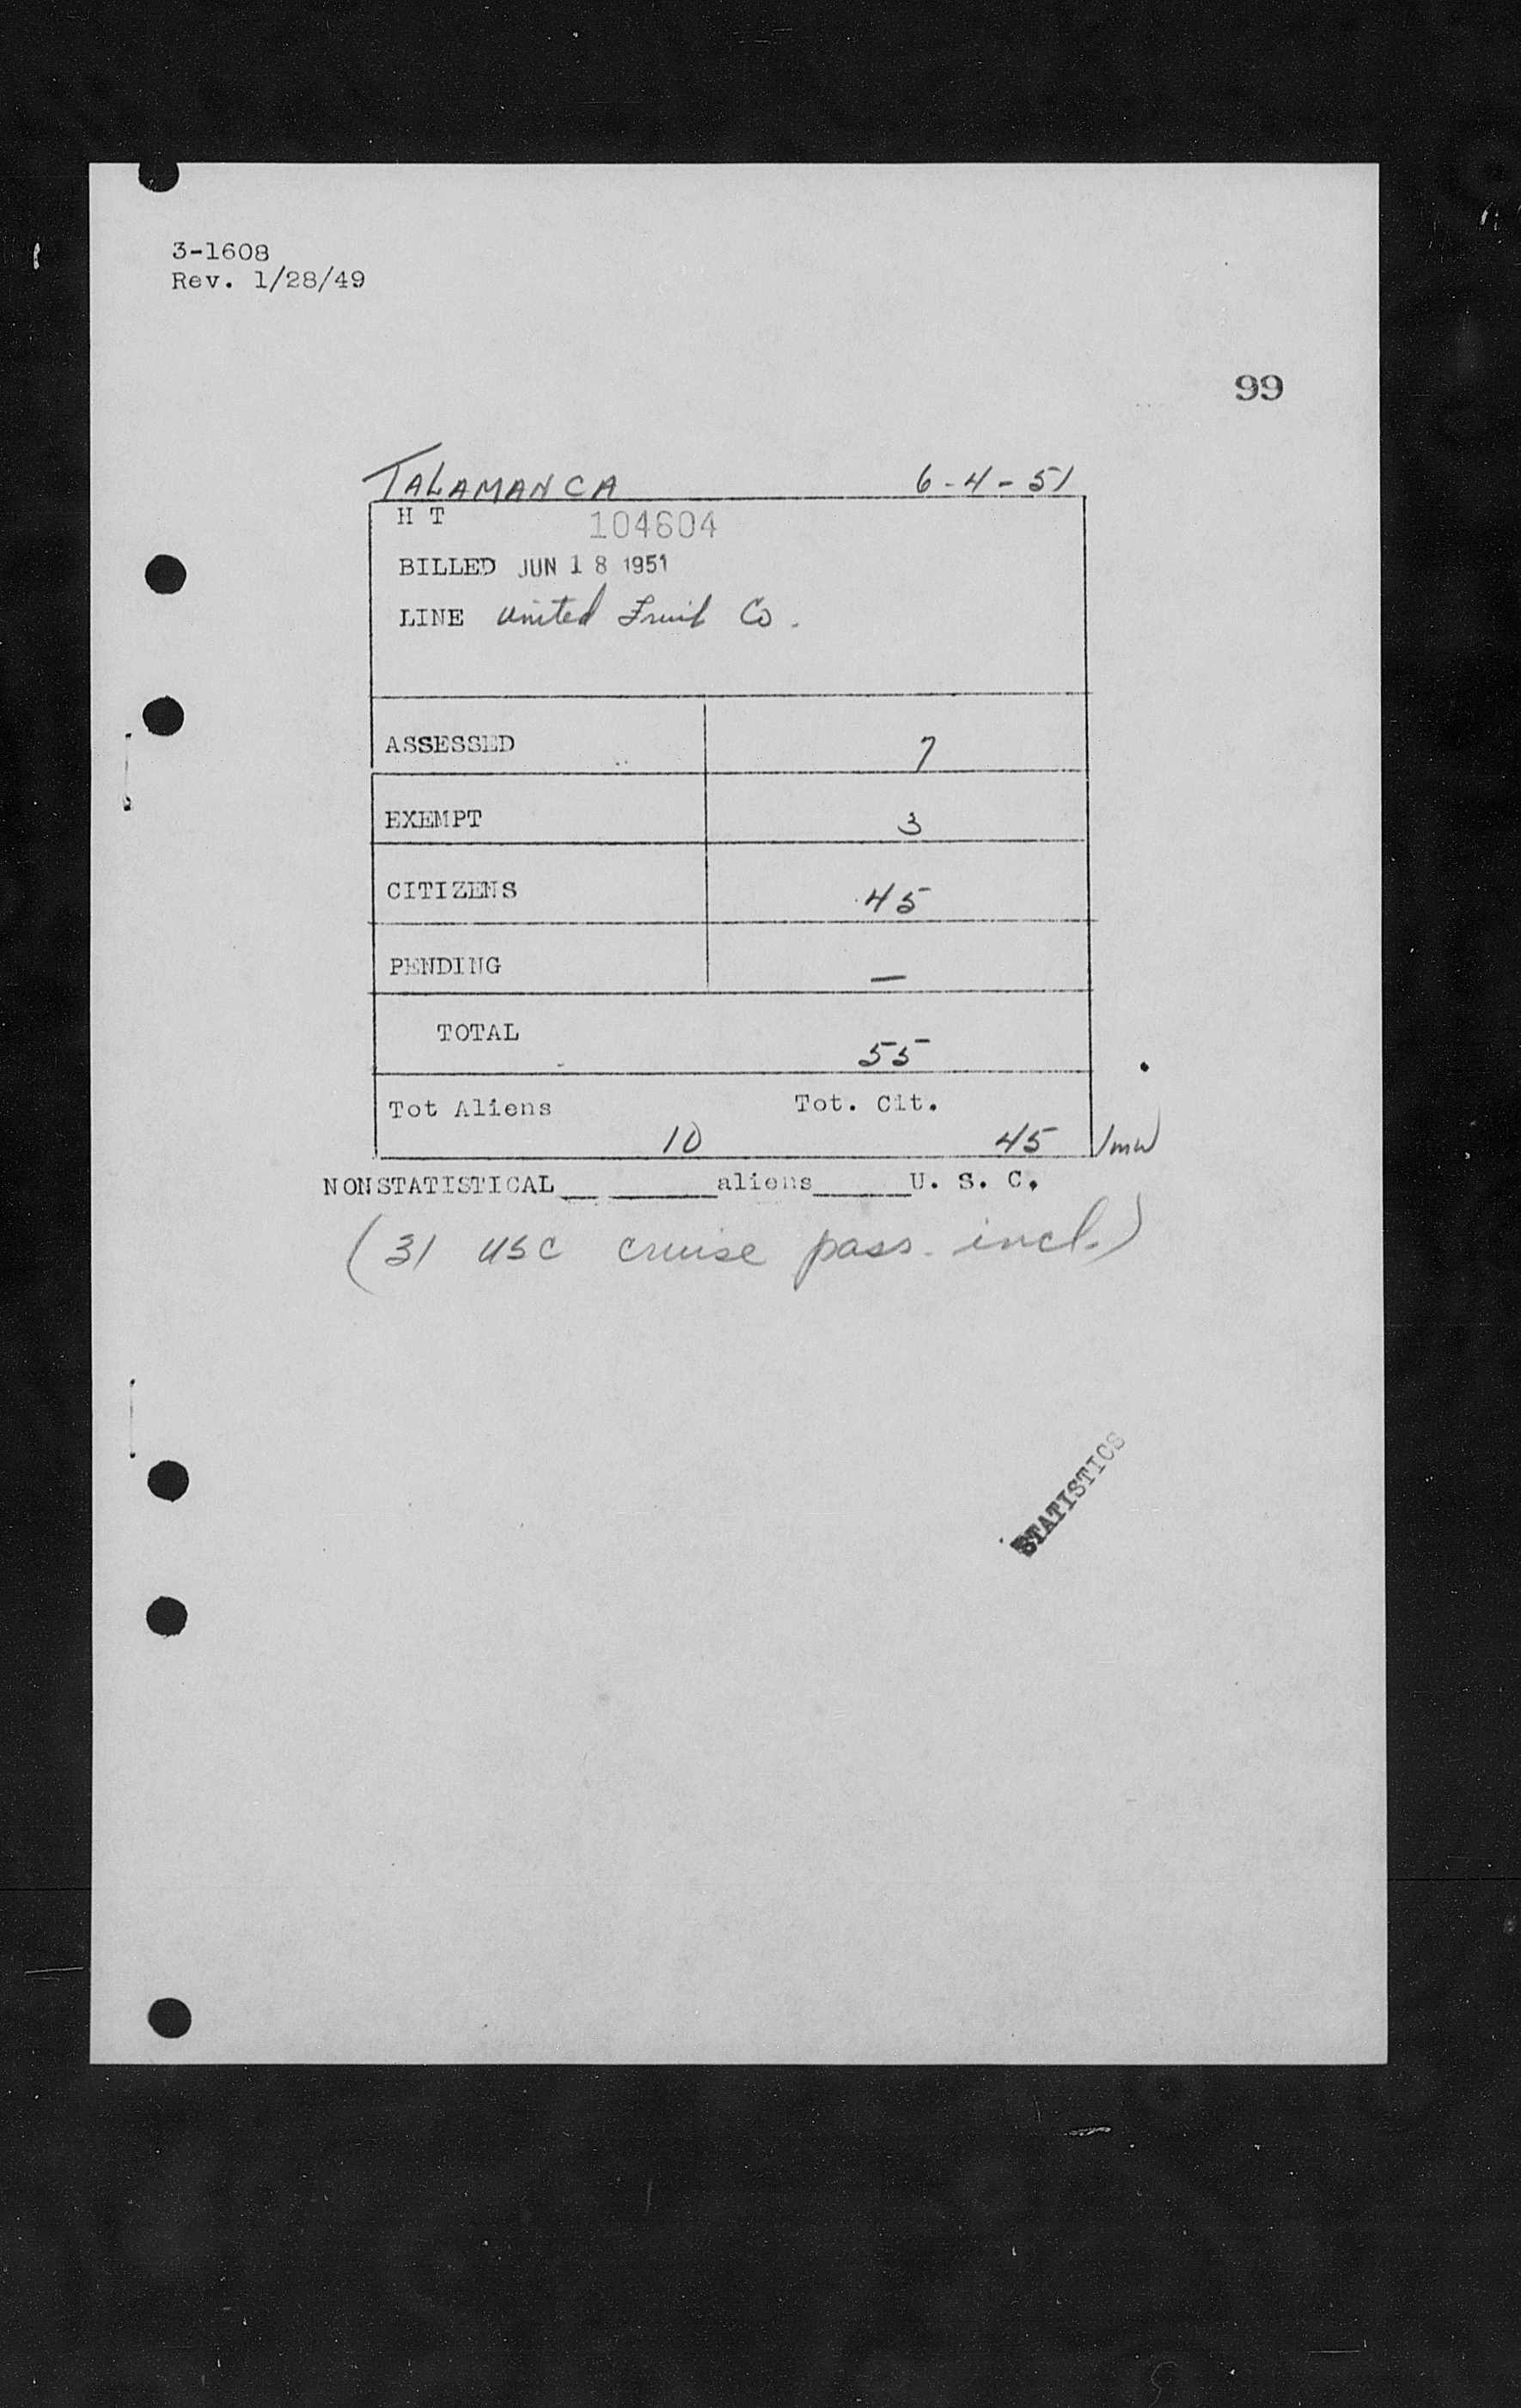 3-1608
Rev. 1/28/49
99
TALAMANCA 6-4-51
H T 104604
BILLED JUN 18 1951
LINE United Fruit Co.
ASSESSED 7
EXEMPT 3
CITIZENS 45
PENDING —
TOTAL 55
Tot Aliens Tot. Cit.
10 45 /mw
NONSTATISTICAL__ ______aliens_____U. S. C.
(31 USC cruise pass. incl.)
STATISTICS